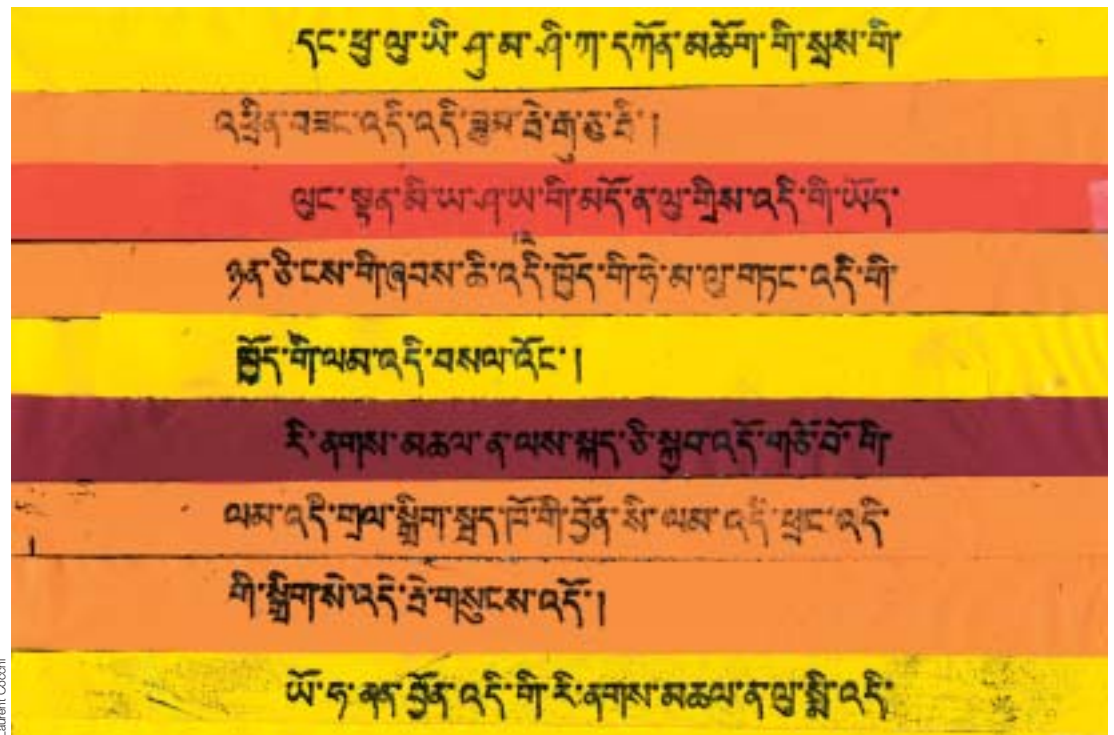 དང་ཕུ་ལུ་ཡི་ཤུ་མ་ཤི་ཀ་དཀོན་མཆོག་གི་སྲས་གི་
འཕྲིན་བཟང་འདི་འདི་ ཟེ་རྒུ་ཅ་རི །
ལུང་སྟན་མི་ཡ་ཤ་ཡ་གི་མདོ་ན་ལུ་གྲིས་འདི་གི་ཡོད་
ཉན་ཅི་ངས་གི་ཞབས་ཆི་འདི་ཁྱོད་གི་ཧེ་མ་ལུ་གཏང་འདི་གི་
ཁྱོད་གི་ལམ་འདི་བསལ་འོང་།
རི་ནགས་མཆལ་ན་ལས་སྐད་ཅི་སྐྱབ་འདོ་གཙོ་བོ་གི་
ལམ་འདི་གྲལ་སྒྲིག་སྦད་ཁོ་གི་བྱོན་སི་ལམ་འདི་ཕྲང་འདི་
གི་སྒྲིག་སེ་འདི་ཟེ་གསུངས་འདོ།
ཡོ་ཧ་ནན་བྱོན་འདི་གི་རི་ནགས་མཆལ་ན་ལུ་སྨི་འདི་
Laurent Cocchi